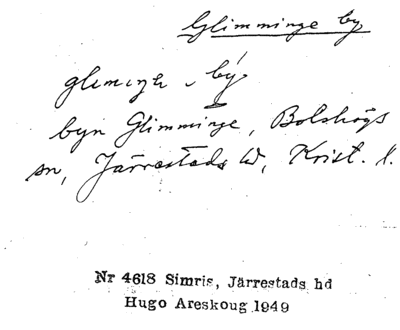 Glimminge by
glemiŋə by
byn Glimminge, Bolshögs
sn, Järrestads hd, Krist. l.
Nr 4618 Simris, Järrestads hd
Hugo Areskoug 1949